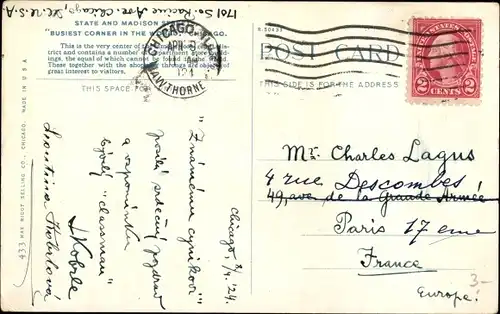 1701 So. Racine Ave. Chicago, Ill. U.S.A
STATE AND MADISON
"BUSIEST CORNER IN THE CHICAGO.
This is the very center of
trict and contains a number of
ings, the equal of which cannot be found in the world.
These together with the shop are objects of
great interest to visitors.
THIS SPACE FOR
CHICAGO
APR
1924
HAWTHORNE
POST CARD
THIS SIDE FOR THE ADDRESS
2 CENTS 2
433 MAX RIGOT SELLING CO., CHICAGO. MADE IN U.S.A.
Chicago, 8/4. '24.
"Známému cynikovi"
posílá srdečný pozdrav
a vzpomínku
bývalý "classman"
J Kobrle
Leontina Kobrlová
Mr. Charles Lagus
4 rue Descombes
49, ave de la Grande Armée
Paris 17 eme
France
Europe!
3-